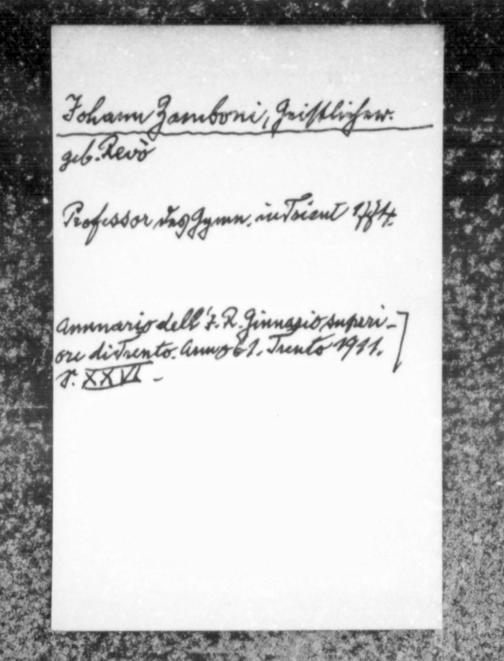 Johann Zamboni, Geistlicher.
geb. Revò
Professor des Gymn. in Trient
Annuario dell' I. R. Ginnasio superi-
ore di Trento. Anno 61. Trento 1911.
S. XXVI -